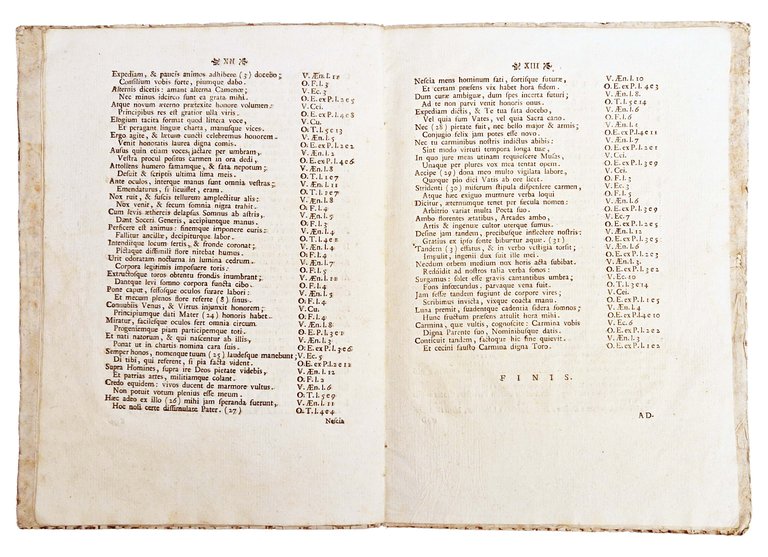 XII
Expediam, & paucis animos adhibere (3) docebo; V. Æn. l. 11
Consilium vobis forte, piumque dabo. O. F. l. 3
Alternis dicetis: amant alterna Camenæ; V. Ec. 3
Nec minus ideirco sunt ea grata mihi. O. E. ex P. l. 2 e 5
Atque novum æterno prætexite honore volumen V. Cei.
Principibus res est gratior ulla viris. O. E. ex P. l. 4 e 8
Elogium tacita format quod littera voce, V. Cu.
Et peragant linguæ charta, manusque vices. O. T. l. 5 e 13
Ergo agite, & lætum cuncti celebremus honorem V. Æn. l. 5
Venit honoratis laurea digna comis. O. E. ex P. l. 2 e 1
Ausus quin etiam voces jactare per umbram, V. Æn. l. 2
Vestra procul positus carmen in ora dedi, O. E. ex P. l. 4 e 6
Attollens humero famamque, & fata nepotum; V. Æn. l. 8
Desuit & scriptis ultima lima meis. O. T. l. 1 e 7
Ante oculos, interque manus sunt omnia vestras; V. Æn. l. 11
Emendaturus, si licuisset, eram. O. T. l. 1 e 7
Nox ruit, & fuscis tellurem amplectitur alis: V. Æn. l. 8
Nox venit, & secum somnia nigra trahit. O. F. l. 4
Cum levis æthereis delapsus Somnus ab astris, V. Æn. l. 5
Dant Soceri Generis, accipiuntque manus. O. F. l. 3
Perficere est animus: finemque imponere curis: V. Æn. l. 4
Fallitur ancillæ, decipiturque labor. O. T. l. 4 e 1
Intenditque locum sertis, & fronde coronat; V. Æn. l. 4
Pictaque dissimili flore nitebat humus. O. F. l. 4
Urit odoratam nocturna in lumina cedrum. V. Æn. l. 7
Corpora legitimis imposuere toris: O. F. l. 5
Extructosque toros obtentu frondis inumbrant; V. Æn. l. 11
Dantque levi somno corpora functa cibo. O. F. l. 4
Pone caput, fessosque oculos furare labori: V. Æn. l. 5
Et mecum plenos flore referre (8) sinus. O. F. l. 4
Connubiis Venus, & Virtus injunxit honorem; V. Cu.
Principiumque dati Mater (24) honoris habet. O. F. l. 4
Miratur, facilesque oculos fert omnia circum. V. Æn. l. 8
Progeniemque piam participemque tori. O. E. P. l. 3 e 1
Et nati natorum, & qui nascentur ab illis, V. Æn. l. 3
Ponat ut in chartis nomina cara suis. O. E. ex P. l. 3 e 6
Semper honos, nomenque tuum (25) laudesque manebunt; V. Ec. 5
Di tibi, qui referent, si pia facta vident. O. E. ex P. l. 2 e 11
Supra Homines, supra ire Deos pietate videbis, V. Æn. l. 12
Et patrias artes, militiamque colant. O. F. l. 2
Credo equidem: vivos ducent de marmore vultus. V. Æn. l. 6
Non potuit votum plenius esse meum. O. T. l. 5 e 9
Hæc adeo ex illo (26) mihi jam speranda fuerunt, V. Æn. l. 11
Hoc nosti certe dissimulate Pater. (27) O. T. l. 4 e 4
Nescia
XIII
Nescia mens hominum fati, sortisque futuræ, V. Æn. l. 10
Et certam præsens vix habet hora fidem. O. E. ex P. l. 4 e 3
Dum curæ ambiguæ, dum spes incerta futuri; V. Æn. l. 8.
Ad te non parvi venit honoris onus. O. T. l. 5 e 14
Expediam dictis, & Te tua fata docebo, V. Æn. l. 6
Vel quia sum Vates, vel quia Sacra cano. O. F. l. 6
Nec (28) pietate fuit, nec bello major & armis; V. Æn. l. 1
Conjugio felix jam potes esse novo. O. E. ex P. l. 4 e 11
Nec tu carminibus nostris indictus abibis: V. Æn. l. 7
Sint modo virtuti tempora longa tuæ, O. E. ex P. l. 2 e 1
In quo jure meas utinam requiescere Musas, V. Cei.
Unaque per plures vox mea tentat opem. O. E. ex P. l. 3 e 9
Accipe (29) dona meo multo vigilata labore, V. Cei.
Quæque pio dici Vatis ab ore licet. O. F. l. 3
Stridenti (30) miserum stipula disperdere carmen, V. Ec. 3
Atque hæc exiguo murmure verba loqui O. F. l. 5
Dicitur, æternumque tenet per sæcula nomen: V. Æn. l. 6
Arbitrio variat multa Poeta suo. O. E. ex P. l. 3 e 9
Ambo florentes ætatibus, Arcades ambo, V. Ec. 7
Artis & ingenuæ cultor uterque sumus. O. E. ex P. l. 2 e 5
Desine jam tandem, precibusque inflectere nostris: V. Æn. l. 12
Gratius ex ipso fonte bibuntur aquæ. (31) O. E. ex P. l. 3 e 5
Tandem (3) effatus, & in verbo vestigia torsit; V. Æn. l. 6
Impulit, ingenii dux fuit ille mei. O. E. ex P. l. 2 e 3
Necdum orbem medium nox horis acta subibat. V. Æn. l. 3.
Reddidit ad nostros talia verba sonos: O. E. ex P. l. 3 e 2
Surgamus: solet esse gravis cantantibus umbra; V. Ec. 10
Fons infœcundus, parvaque vena fuit. O. T. l. 3 e 14
Jam fesse tandem fugiunt de corpore vires; V. Cei.
Scribimus invicta, vixque coacta manu. O. E. ex P. l. 1 e 5
Luna premit, suadentque cadentia sidera somnos; V. Æn. l. 4
Hunc fructum præsens attulit hora mihi. O. E. ex P. l. 4 e 10
Carmina, quæ vultis, cognoscite: Carmina vobis V. Ec. 6
Digna Parente suo, Nominibusque datis. O. E. ex P. l. 2 e 2
Conticuit tandem, factoque hic fine quievit. V. Æn. l. 3
Et cecini fausto Carmina digna Toro. O. E. ex P. l. 1 e 2
FINIS.
AD-